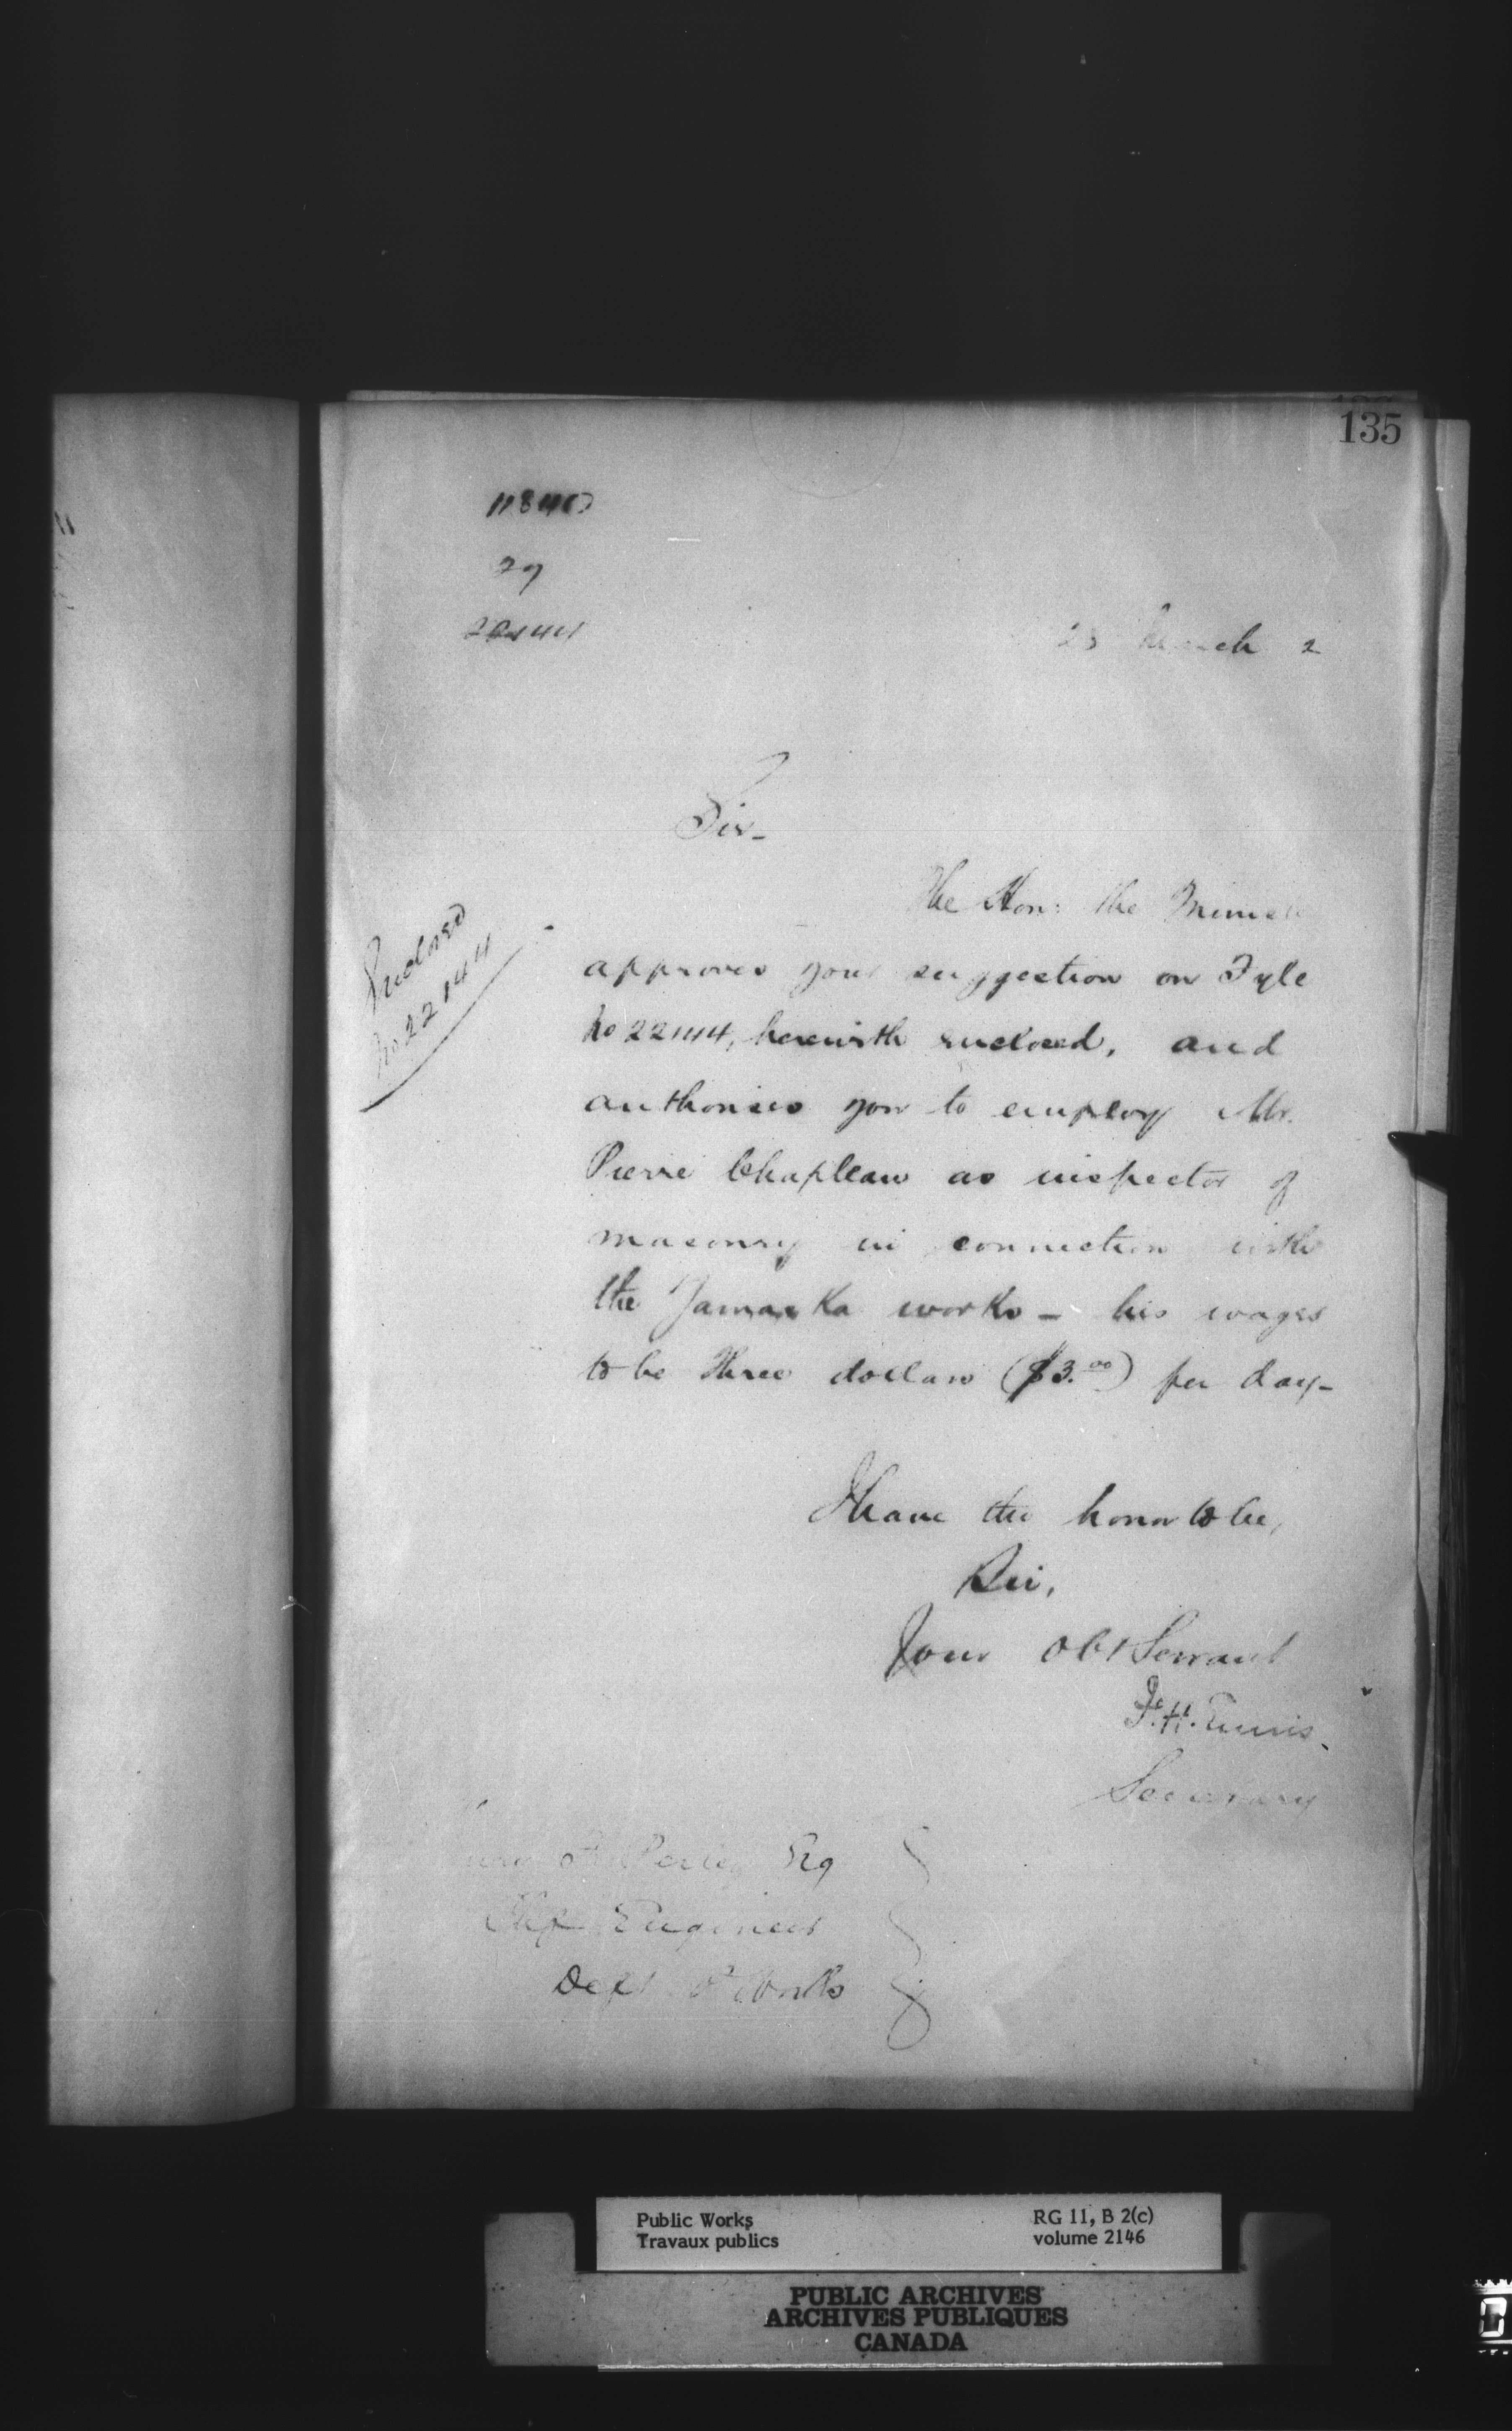 135
11840
29
22144
23 March 2
Sir_
The Hon: the Minister
approves your suggestion on Fyle
No 22144, herewith enclosed, and
authorises you to employ Mr.
Pierre Chapleau as inspector of
masonry in connection with
the Yamaska works _ his wages
to be three dollars ($3.00) per day_
Enclosed
No 22144
I have the honor to be,
Sir,
Your Obt Servant
F.H. Ennis.
Secretary
Perley Esq
Chf Engineer
Dept P. Works
Public Works
Travaux publics
RG 11, B 2(c)
volume 2146
PUBLIC ARCHIVES
ARCHIVES PUBLIQUES
CANADA